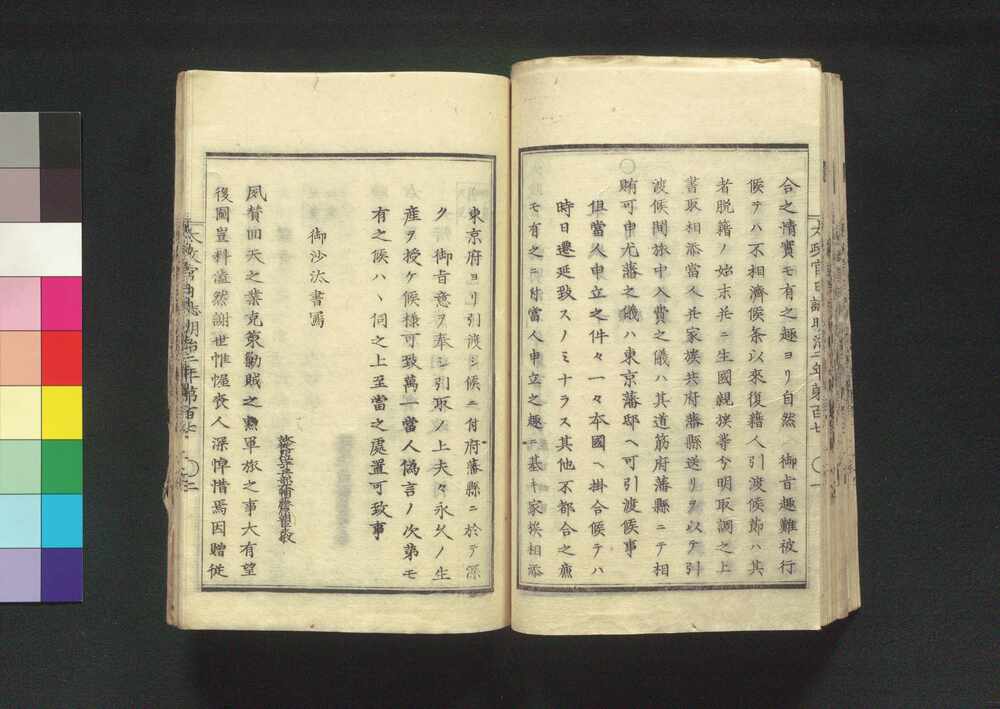 合之情實モ有之趣ヨリ自然 御旨趣難被行
候テハ不相濟候条以來復籍人引渡候節ハ其
者脱籍ノ始末并ニ生國親族等分明取調之上
書取相添當人并家族共府藩縣送リヲ以テ引
渡候間旅中入費之儀ハ其道筋府藩縣ニテ相
賄可申尤藩之儀ハ東京藩邸ヘ可引渡候事
○
但當人申立之件々一々本國ヘ掛合候テハ
時日遷延致スノミナラス其他不都合之廉
モ有之ニ付當人申立之趣ニ基キ家族相添
太政官日誌明治二年第百七
東京府ヨリ引渡シ候ニ付府藩縣ニ於テ深
ク 御旨意ヲ奉シ引取ノ上夫々永久ノ生
産ヲ授ケ候様可致萬一當人偽言ノ次第モ
有之候ハヽ伺之上至當之處置可致事
御沙汰書寫
夙賛回天之業克策勦賊之勲軍旅之事大有望
後圖豈料溘然謝世惟幄喪人深悼惜焉因贈従